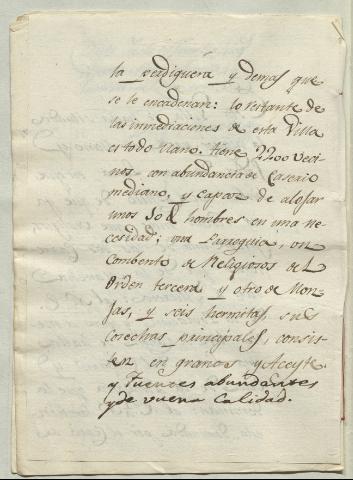 la verdiguera y demas que
se le encadenare: lo restante de
las inmediaciones de esta Villa
es todo llano. tiene 2200 veci
nos con abundancia de Caserio
mediano, y capaz de alojar
unos 30 hombres en una ne
cesidad; una Parroquia, un
Combento de Religiosos de L
Orden tercera y otro de Mon-
jas, y seis hermitas, sus
corechas principales, consis-
ten en granos y Aceyte
y Fuentes abundantes
y de vuena Calidad.